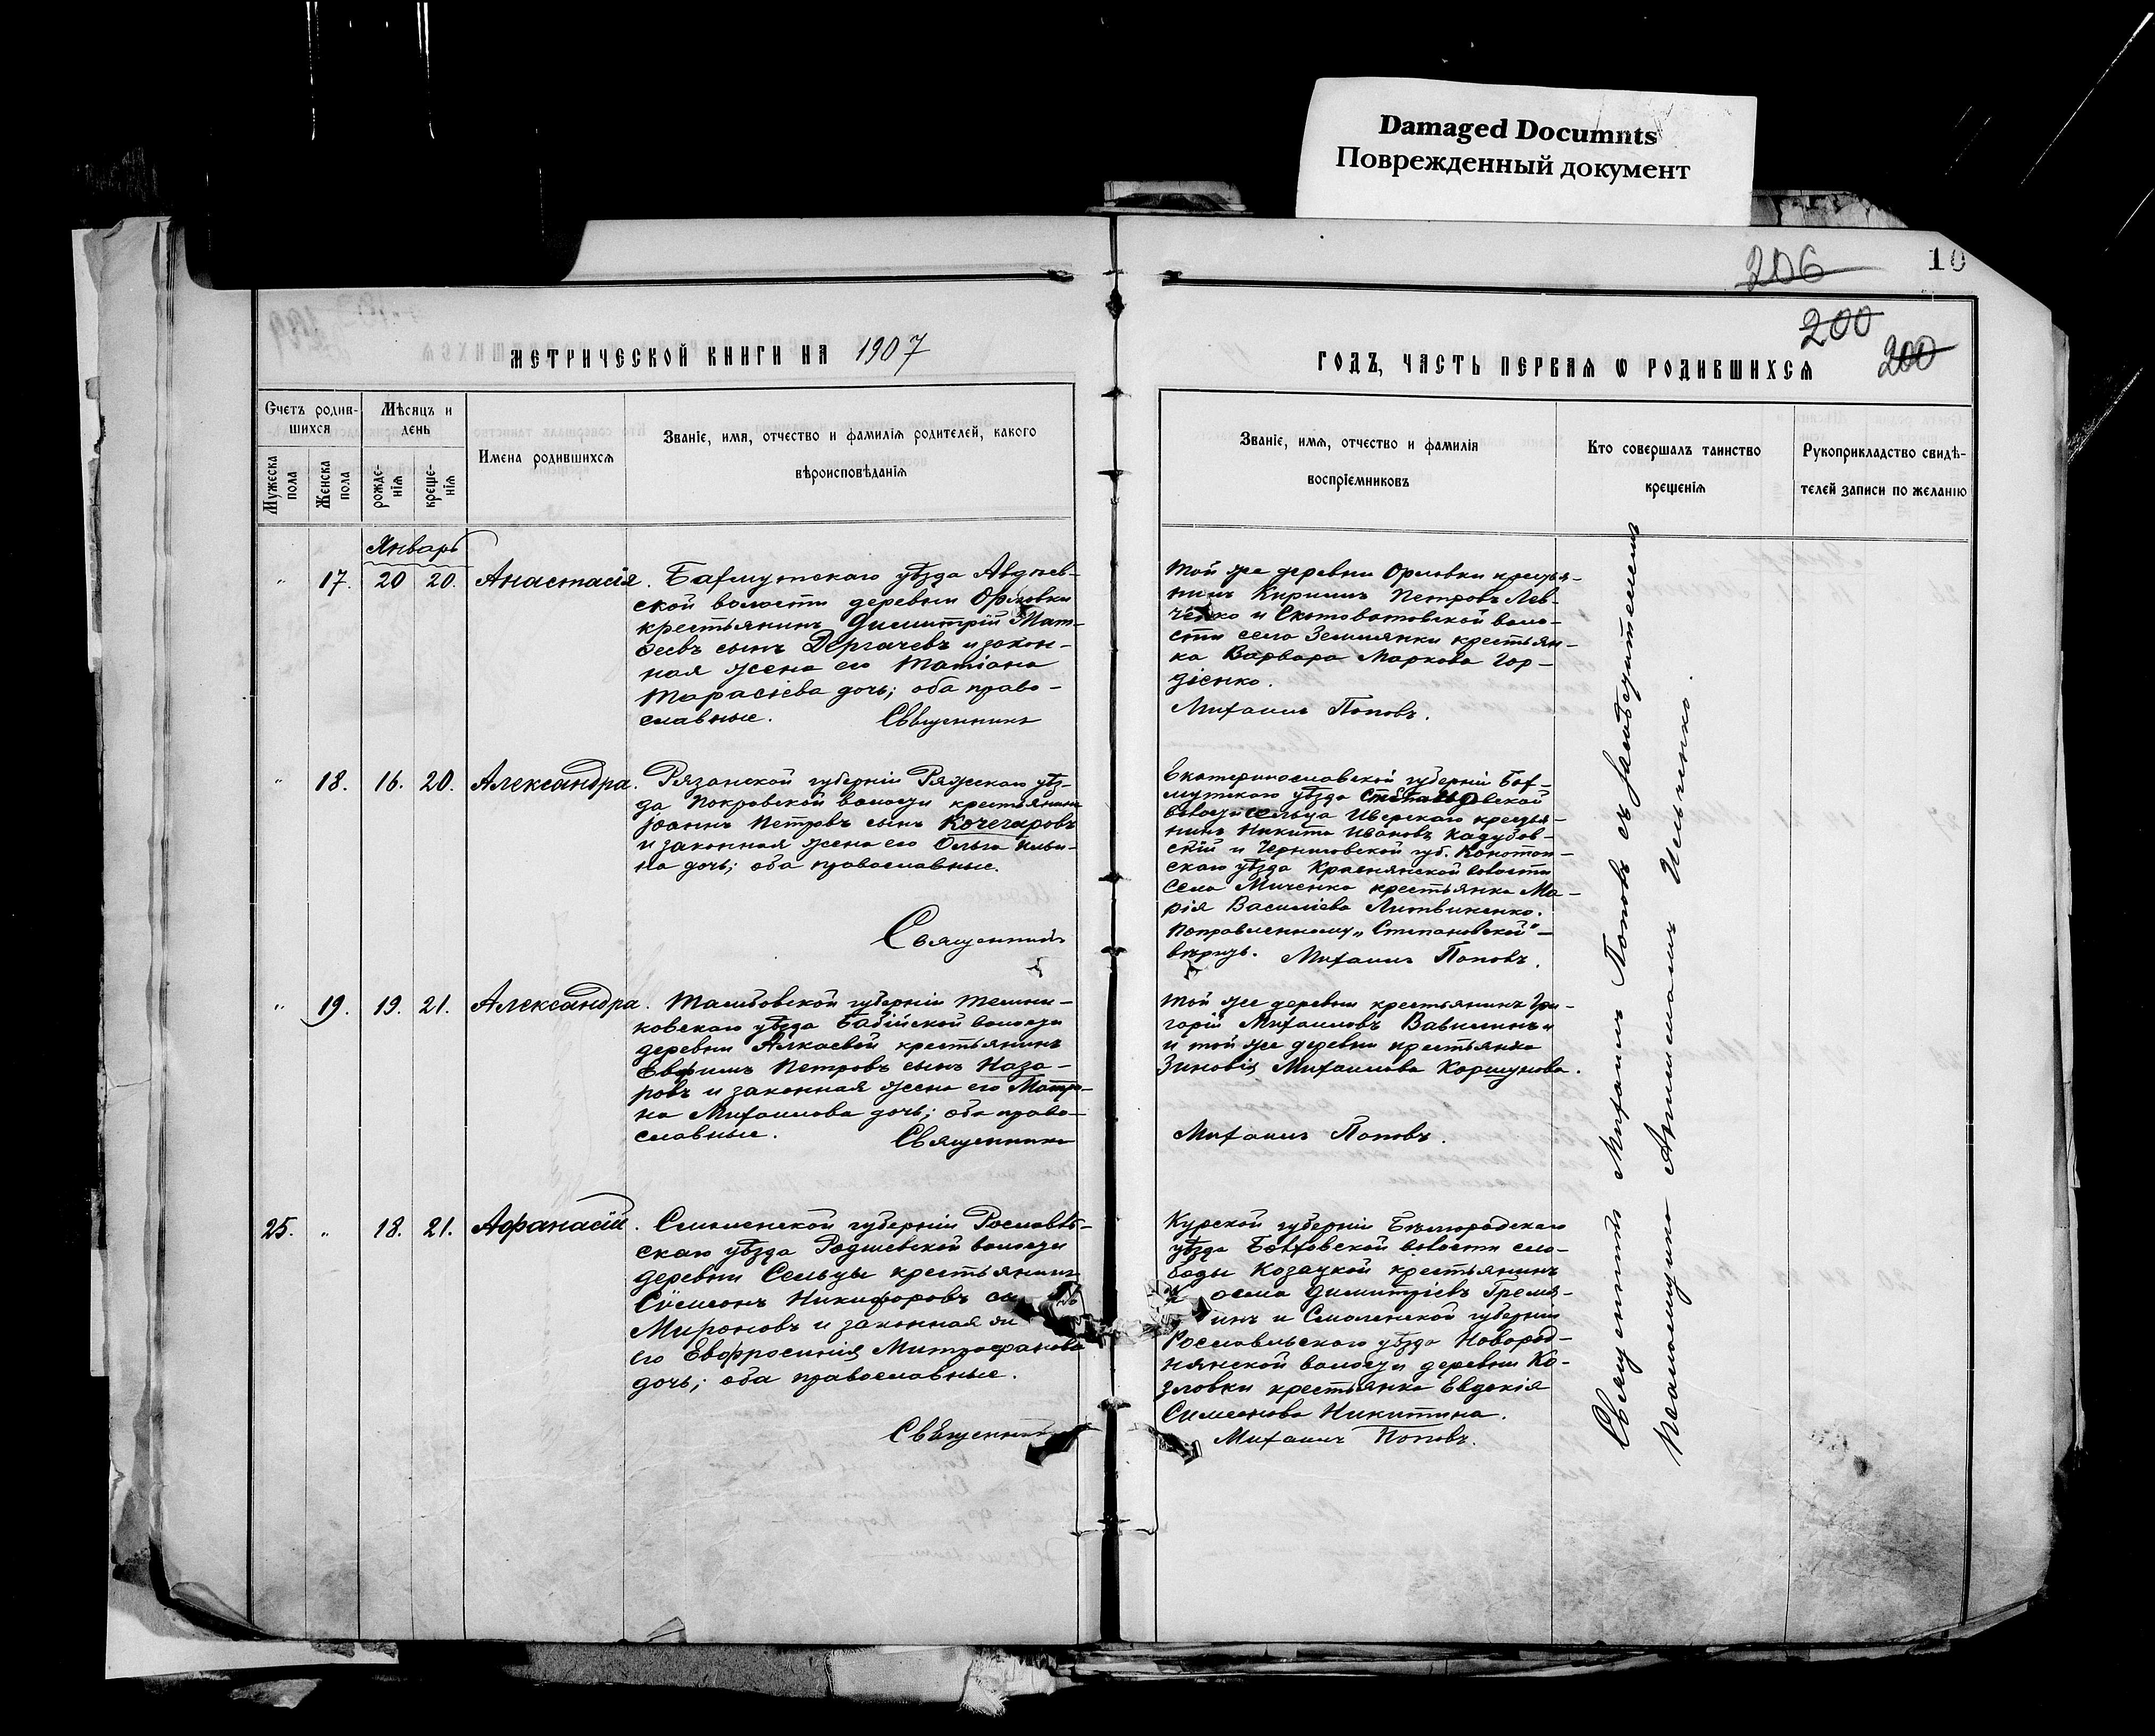 Damaged Documnts
Поврежденный документ
206
10
200
200
МЕТРИЧЕСКОЙ КНИГИ НА 1907
ГОДЪ, ЧАСТЬ ПЕРВАЯ Ѡ РОДИВШИХСЯ
Счетъ родив-
шихся
Мѣсяцъ и
день
Имена родившихся
Званіе, имя, отчество и фамилія родителей, какого
вѣроисповѣданія
Мужеска
пола
Женска
пола
рожде-
нія
креще-
нія
Званіе, имя, отчество и фамилія
воспріемниковъ
Кто совершалъ таинство
крещенія
Рукоприкладство свидѣ-
телей записи по желанію
Январь
" 17. 20 20. Анастасія.
Бахмутскаго уѣзда Авдѣев-
ской волости деревни Орловки
крестьянинъ Димитрій Мат-
ѳеевъ сынъ Дергачевъ и закон-
ная жена его Татіана
Тарасіева дочь; оба право-
славные. Священникъ
Той же деревни Орловки крестья-
нинъ Кириллъ Петровъ Лев-
ченко и Скотоватовской воло-
сти села Землянки крестьян-
ка Варвара Маркова Гор-
діенко.
Михаилъ Поповъ.
" 18. 16. 20. Александра.
Рязанской губерніи Ряжскаго уѣз-
да Покровской волости крестьянинъ
Іоаннъ Петровъ сынъ Кочегаровъ
и законная жена его Ольга Ильи-
на дочь; оба православные.
Священникъ
Екатеринославской губерніи Бах-
мутскаго уѣзда Степановской
волости сельца Иверскаго крестья-
нинъ Никита Ивановъ Кадубов-
скій и Черниговской губ. Конотоп-
скаго уѣзда Краснянской волости
села Миченка крестьянка Ма-
рія Василіева Литвиненко.
Поправленному "Степановской"
вѣрить. Михаилъ Поповъ.
" 19. 19. 21. Александра.
Тамбовской губерніи Темни-
ковскаго уѣзда Бабійской волости
деревни Алкаевой крестьянинъ
Евфимъ Петровъ сынъ Наза-
ровъ и законная жена его Матро-
на Михаилова дочь; оба право-
славные. Священникъ
Той же деревни крестьянинъ Гри-
горій Михаиловъ Вавилинъ и
и той же деревни крестьянка
Зиновія Михаилова Коршунова.
Михаилъ Поповъ.
25. " 18. 21. Афанасій.
Смоленской губерніи Рославль-
скаго уѣзда Радичевской волости
деревни Сельцы крестьянинъ
Сѵмеонъ Никифоровъ сы
Мироновъ и законная
его Евфросинія Митрофанова
дочь; оба православные.
Священникъ
Курской губерніи Бѣлгородскаго
уѣзда Болховской волости сло-
боды Козацкой крестьянинъ
Димитріевъ Гремя-
инъ и Смоленской губерніи
Рославльскаго уѣзда Новород-
нянской волости деревни Ко-
зловки крестьянка Евдокія
Симеонова Никитина.
Михаилъ Поповъ.
Священникъ Михаилъ Поповъ съ
Псаломщикомъ